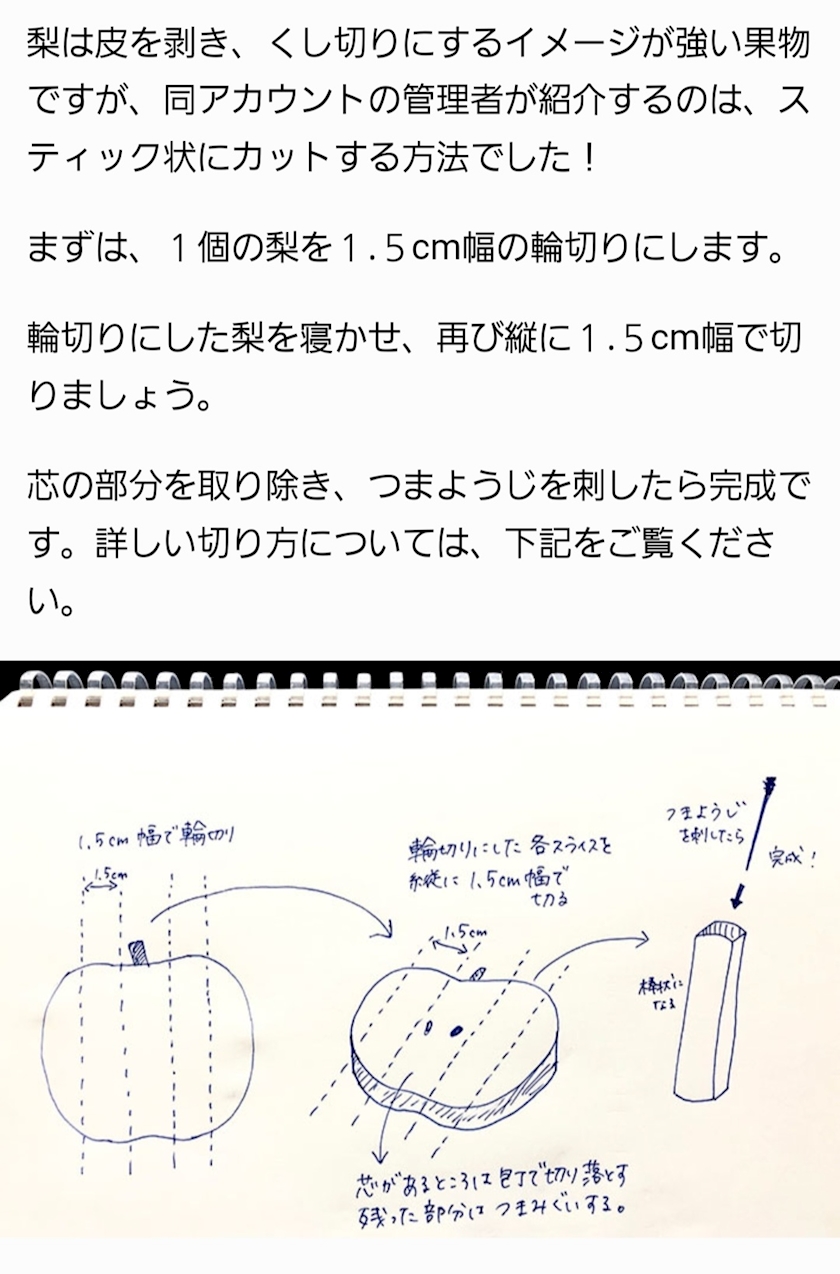 梨は皮を剥き、くし切りにするイメージが強い果物
ですが、同アカウントの管理者が紹介するのは、ス
ティック状にカットする方法でした！
まずは、１個の梨を１.５cm幅の輪切りにします。
輪切りにした梨を寝かせ、再び縦に１.５cm幅で切
りましょう。
芯の部分を取り除き、つまようじを刺したら完成で
す。詳しい切り方については、下記をご覧くださ
い。
1.5cm 幅で輪切り
1.5cm
輪切りにした 各スライスを
縦に 1.5cm 幅で
切る
1.5cm
つまようじ
を刺したら
完成！
棒状に
なる
芯があるところは包丁で切り落とす
残った部分はつまみぐいする。